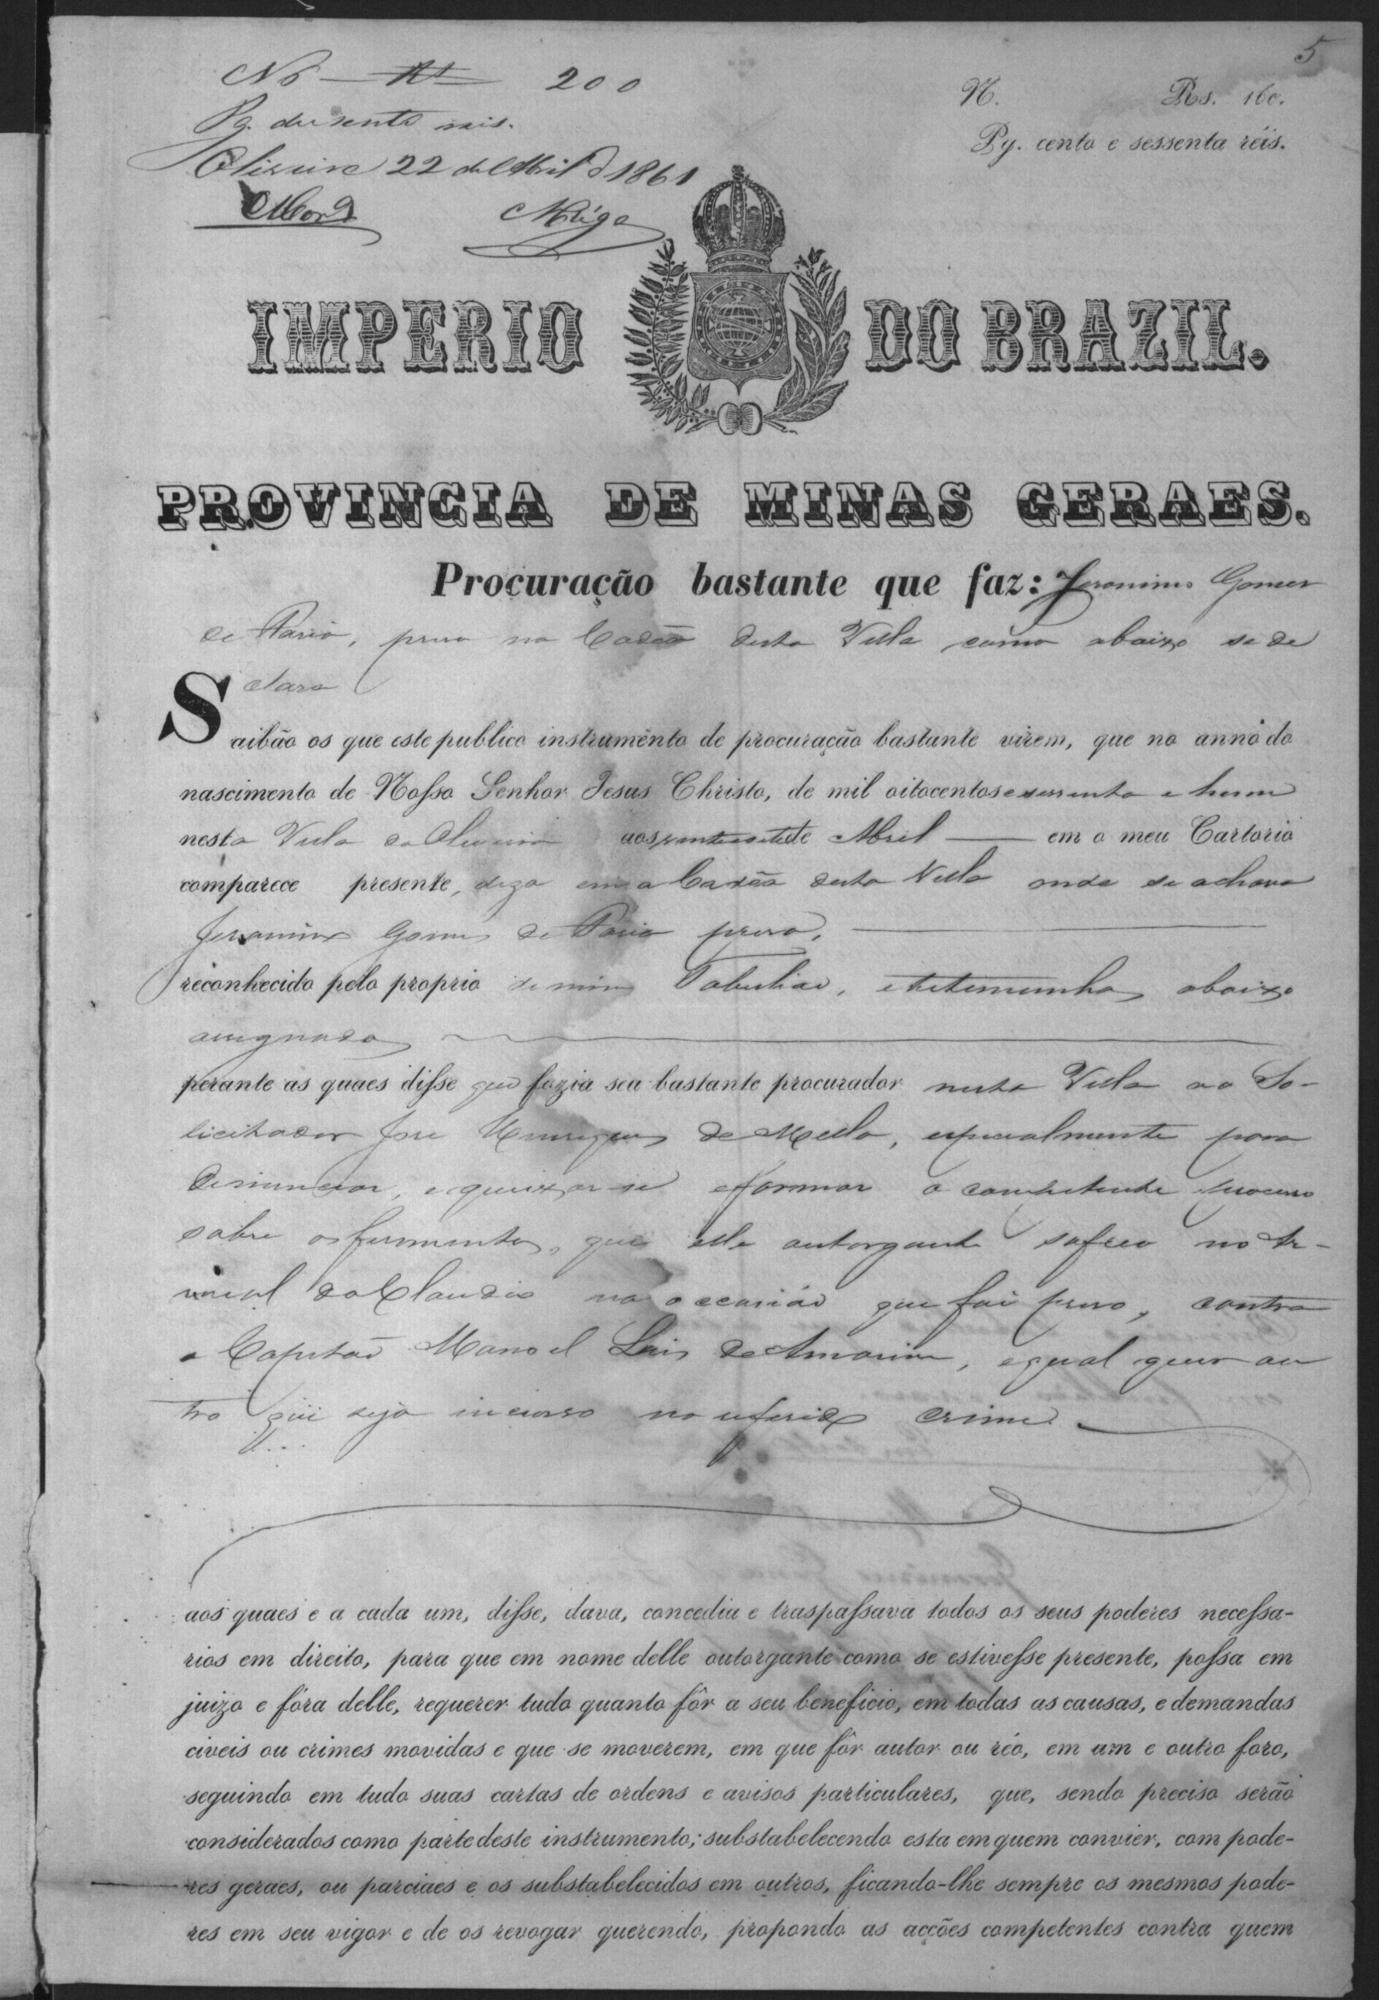 5
N. 200
Rs. 160.
Pg. duzentos reis.
Pg. cento e sessenta réis.
Oliveira 22 de Abril de 1861
IMPERIO DO BRAZIL.
PROVINCIA DE MINAS GERAES.
Procuração bastante que faz: Jeronimo Gomes
de Paria, preso na Cadêa desta Villa como abaixo se de
clara
Saibão os que este publico instrumento de procuração bastante virem, que no anno do
nascimento de Nosso Senhor Jesus Christo, de mil oitocentos e sessenta e hum
nesta Villa da Oliveira aos vinte e sete de Abril em o meu Cartorio
comparece presente, digo em a Cadêa desta Villa onde se achava
Jeronimo Gomes de Paria preso,
reconhecido pelo proprio de mim Tabelião, e testemunhas abaixo
assignadas
perante as quaes disse que fazia seu bastante procurador nesta Villa ao So-
licitador José Henriques de Mello, especialmente para
denunciar, e queixar-se e formar o competente processo
sobre os ferimentos, que elle outorgante sofreo no Ar-
raial do Claudio na occasião que foi preso, contra
o Capitão Manoel Luis de Amorim, e qual quer ou
tro que seja incurso no referido crime.
aos quaes e a cada um, disse, dava, concedia e traspassava todos os seus poderes necessa-
rios em direito, para que em nome delle outorgante como se estivesse presente, possa em
juizo e fóra delle, requerer tudo quanto fôr a seu beneficio, em todas as causas, e demandas
civeis ou crimes movidas e que se moverem, em que fôr autor ou réo, em um e outro foro,
seguindo em tudo suas cartas de ordens e avisos particulares, que, sendo preciso serão
considerados como parte deste instrumento; substabelecendo esta em quem convier, com pode-
res geraes, ou parciaes e os substabelecidos em outros, ficando-lhe sempre os mesmos pode-
res em seu vigor e de os revogar querendo, propondo as acções competentes contra quem